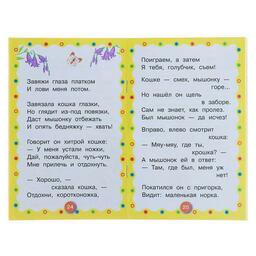 Завяжи глаза платком
И лови меня потом.
Завязала кошка глазки,
Но глядит из-под повязки,
Даст мышонку отбежать
И опять бедняжку — хвать!
Говорит он хитрой кошке:
— У меня устали ножки,
Дай, пожалуйста, чуть-чуть
Мне прилечь и отдохнуть.
— Хорошо, —
сказала кошка, —
Отдохни, коротконожка,
24
Поиграем, а затем
Я тебя, голубчик, съем!
Кошке — смех, мышонку —
горе...
Но нашел он щель
в заборе.
Сам не знает, как пролез.
Был мышонок — да исчез!
Вправо, влево смотрит
кошка:
— Мяу-мяу, где ты,
крошка?
А мышонок ей в ответ:
— Там, где был, меня уж
нет!
Покатился он с пригорка,
Видит: маленькая норка.
25